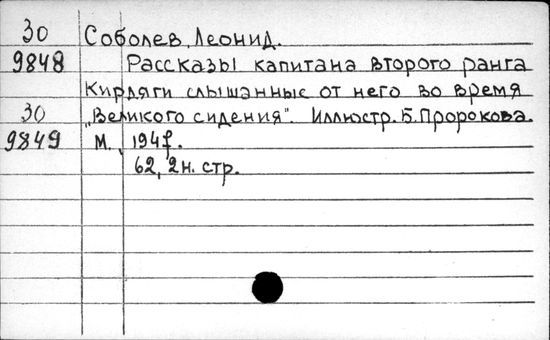 30 Соболев, Леонид.
9848 Рассказы капитана второго ранга
Кирдяги слышанные от него во время
30 „Великого сидения". Иллюстр. Б. Пророкова.
9849 М., 194 г.
62, 2 н. стр.